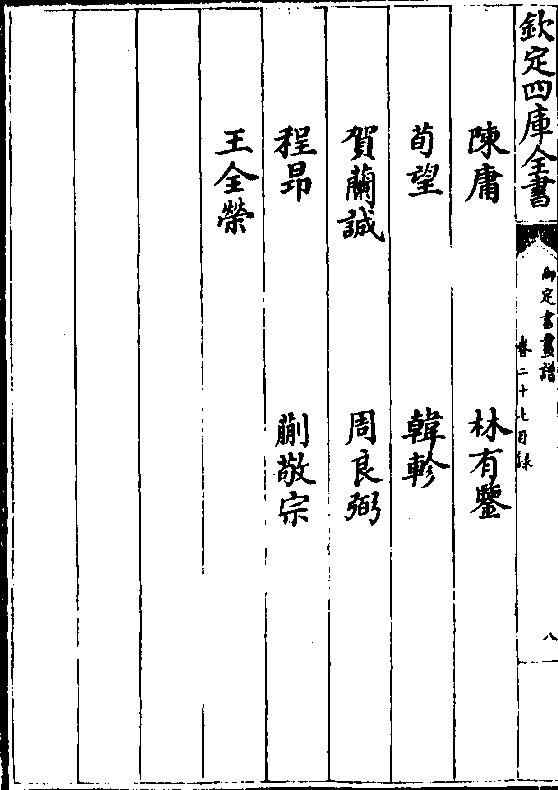 欽定四庫全書
御定書畫譜
卷二十七目錄
八
陳庸
林有鑒
荀望
韓軫
賀蘭誠
周良弼
程昻
蒯敬宗
王全榮